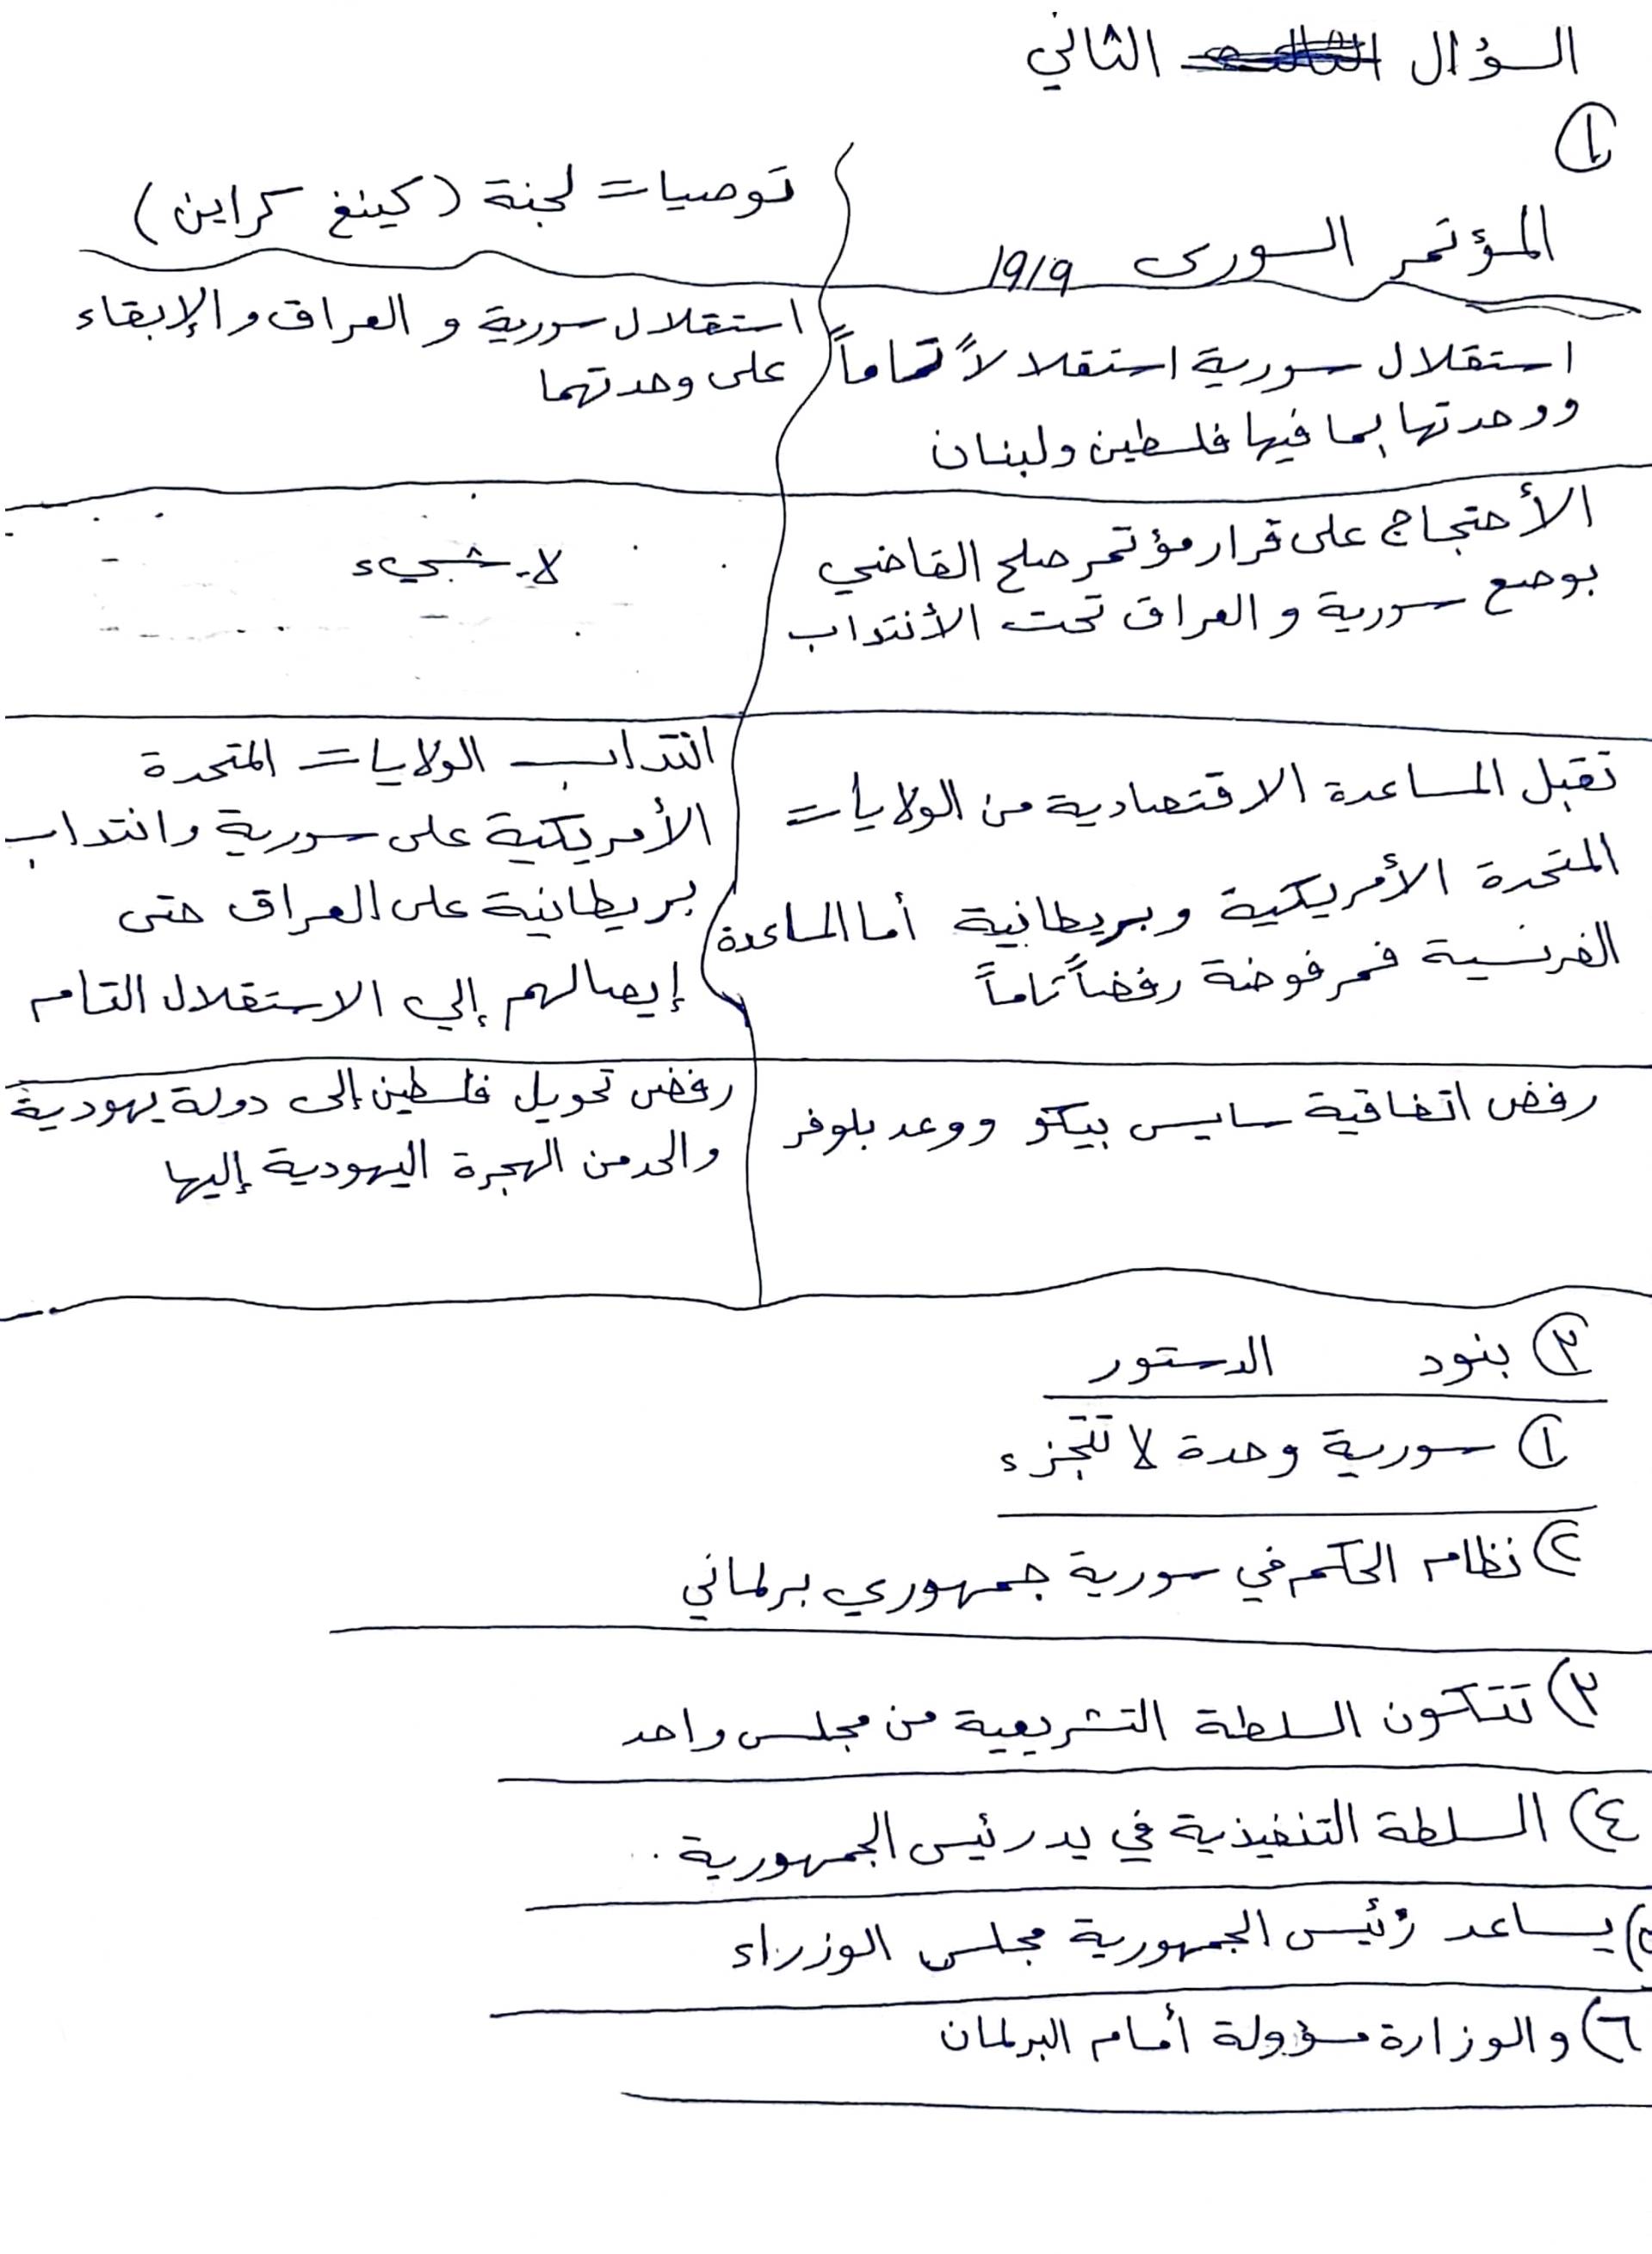 السؤال الثاني
١
المؤتمر السوري ١٩١٩
توصيات لجنة (كينغ كراين)
استقلال سورية استقلالاً تماماً
ووحدتها بما فيها فلسطين ولبنان
استقلال سورية و العراق و الإبقاء
على وحدتهما
الأحتجاج على قرار مؤتمر صلح القاضي
بوضع سورية و العراق تحت الأنتداب
لا شيء
تقبل المساعدة الاقتصادية من الولايات
المتحدة الأمريكية وبريطانية أما الماعدة
الفرنسية فمرفوضة رفضاً تاماً
انتداب الولايات المتحدة
الأمريكية على سورية وانتداب
بريطانية على العراق حتى
إيصالهم إلي الاستقلال التام
رفض اتفاقية سايس بيكو ووعد بلوفر
رفض تحويل فلسطين إلى دولة يهودية
والحد من الهجرة اليهودية إليها
٢ بنود الدستور
١ سورية وحدة لا تتجزء
٢) نظام الحكم في سورية جمهوري برلماني
٣) تتكون السلطة التشريعية من مجلس واحد
٤) السلطة التنفيذية في يد رئيس الجمهورية ..
٥) يساعد رئيس الجمهورية مجلس الوزراء
٦) والوزارة مسؤولة أمام البرلمان